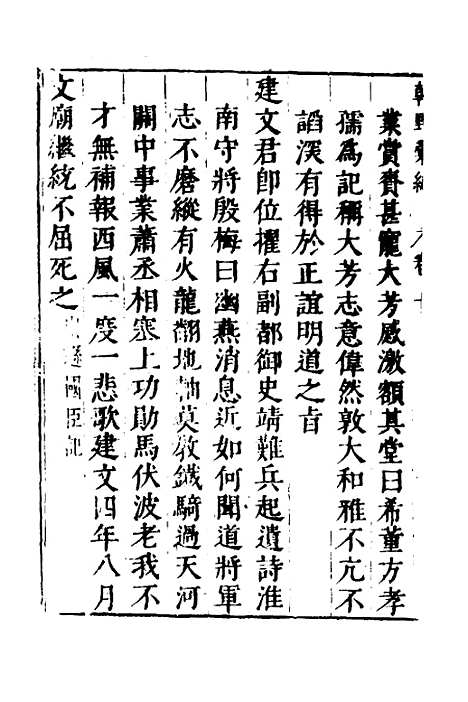 業賞賚甚寵大芳感激額其堂曰希董方孝
孺為記稱大芳志意偉然敦大和雅不亢不
謟深有得於正誼明道之旨
建文君卽位擢右副都御史靖難兵起遺詩淮
南守將殷梅曰幽燕消息近如何聞道將軍
志不磨縱有火龍翻地軸莫教鐵騎過天河
關中事業蕭丞相塞上功勛馬伏波老我不
才無補報西風一度一悲歌建文四年八月
文廟繼統不屈死之 遜國臣記